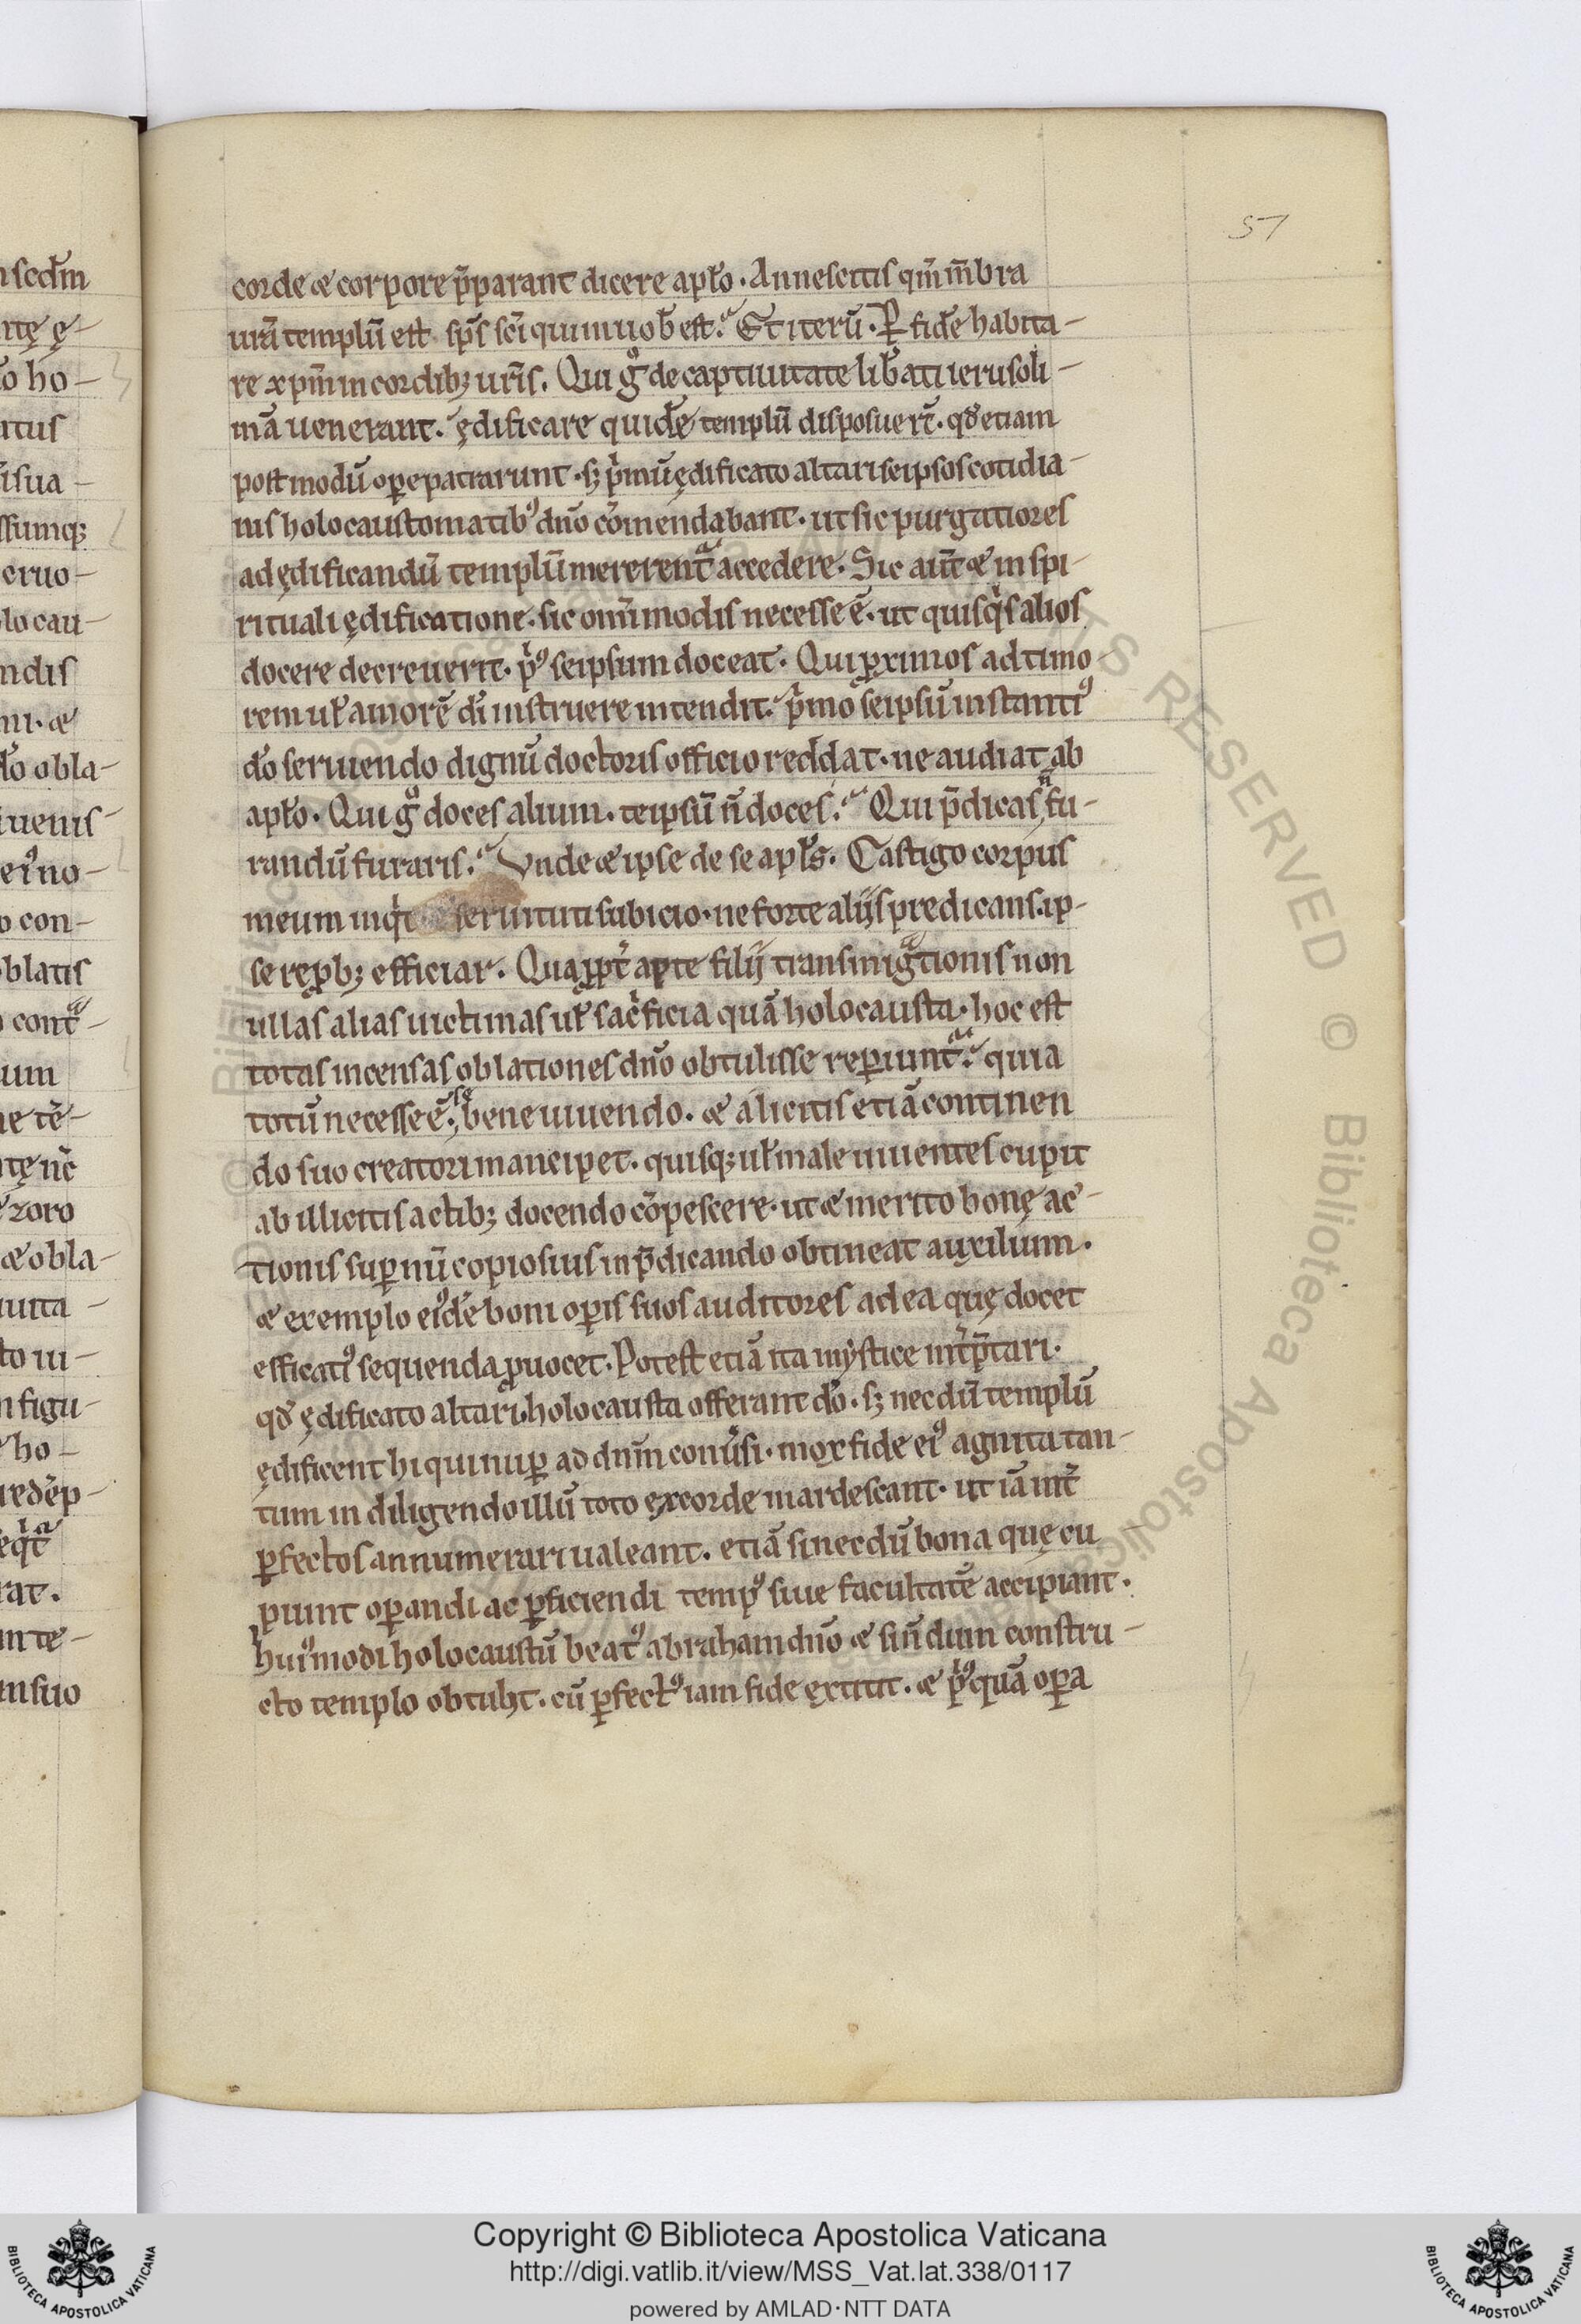 57
corde & corpore p̄parant dicere apło. Annescitis qm̄ m̄bra
ur̄a templū est sp̄s sc̄i qui in uob̄ est. Et iterū. P̲ fidē habita-
re xpm̄ in cordib; ur̄is. Qui gͦ de captiuitate lib̄ati ierusoli-
mā uenerant. ędificare quidē templū disposuer̄t. qđ etiam
postmodū op̲e patrarunt. s; pͥmū ędificato altari seipsos cotidia-
nis holocaustomatib᾿ dn̄o cōmendabant. ut sic purgatiores
ad ędificandū templū mererent᷑ accedere. Sic aūt & in spi-
rituali ędificatione. sic om̄imodis necesse ē. ut quisqͥs alios
docere decreuerit. pͥͦ seipsum doceat. Qui ꝓximos ad timo-
rem uł amorē dī instruere intendit. pͥmo seipsū instanti᾿
dō seruiendo dignū doctoris officio reddat. ne audiat ab
apło. Qui gͦ doces alium. teipsū n̄ doces. Qui p̄dicas n̄ fu-
randū furaris. Vnde & ipse de se apłs. Castigo corpus
meum inqͥt seruituti subicio. ne forte alijs predicans. ip-
se rep̲b; efficiar. Quaꝓpt̄ apte filij transmigͣtionis non
ullas alias uictimas uł sac̄ficia quā holocausta. hoc est
totas incensas oblationes dn̄o obtulisse rep̲iunt᷑. quia
totū necesse ē. se bene uiuendo. & a licitis etiā continen
do suo creatori mancipet. quisq; uł male uiuentes cupit
ab illicitis actib; docendo cōpescere. ut & merito bonę ac-
tionis sup̲nū copiosius in p̄dicando obtineat auxilium.
& exemplo ei᾿dē boni op̲is suos auditores ad ea quę docet
efficati᾿ sequenda ꝓuocet. Potest etiā ita mystice int̄p̄tari.
qđ ędificato altari holocausta offerant dō. s; necdū templū
ędificent hi qui nup̲ ad dn̄m conūsi. mox fide ei᾿ agnita tan-
tum in diligendo illū toto ex corde inardescant. ut iā int̄
p̲fectos annumerari ualeant. etiā si necdū bona quę cu
piunt op̲andi ac p̲ficiendi temp᾿ siue facultatē accipiant.
hui᾿modi holocaustū beat᾿ abraham dn̄o & sin̄ dum constru-
cto templo obtulit. cū p̲fect᾿ iam fide extitit. & pͥ᾿quā op̲a
Copyright © Biblioteca Apostolica Vaticana
http://digi.vatlib.it/view/MSS_Vat.lat.338/0117
powered by AMLAD·NTT DATA
BIBLIOTECA APOSTOLICA VATICANA
BIBLIOTECA APOSTOLICA VATICANA